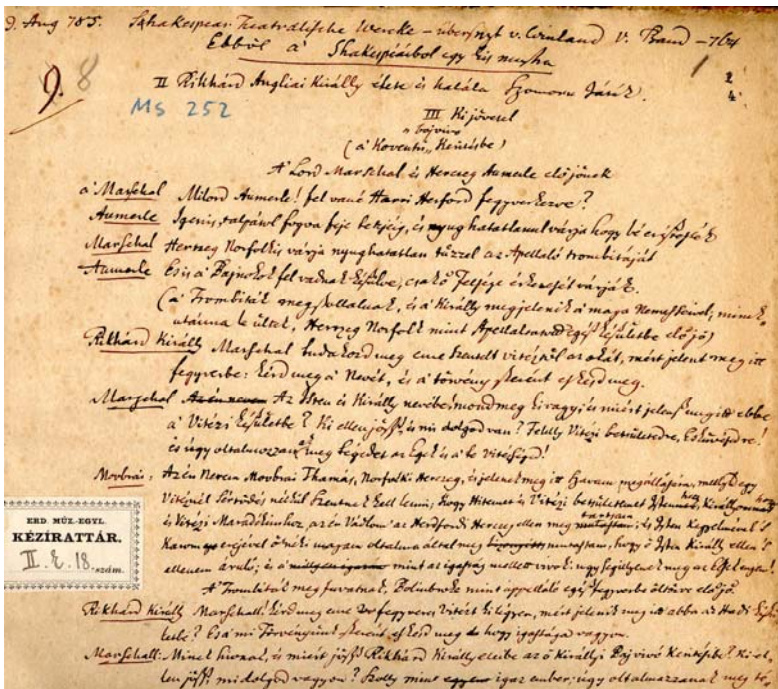 9. Aug 785. Schakespear Teatralische Wercke – übersezt v. Wieland V. Band – 764
Ebből a' Shakespeárbol egy kis mustra
9. 8
II Rikhárd Angliai Király élete és halála Szomoru Játék.
2
4
MS 252
III Kijövesel
bajvivó
(a' Koventri Kerítésbe)
A' Lord Marschal és Herczeg Aumerle előjönek
a' Marschal Milord Aumerle! fel vané Harri Herford fegyverkezve?
Aumerle Igenis, talpától fogva feje tetejéig, és nyughatatlanul várja hogy bé
Marschal Hertzeg Norfolkis várja nyughatatlan tűzzel az Apelláló trombitáját
Aumerle És is a' Bajnokok fel vadnak készülve, csak ő Felsége érkezését várják.
(a' Trombiták megszollalnak, és a' Király megjelenik a' maga Nemesseivel; minek
utánna le ültek, Herzeg Norfolk mint egész készületbe elő jő)
Rikhárd Király Marschal tudakozd meg eme Szentelt vitéztől az okát, miért jelent meg itt
fegyverbe: kérd meg a' Nevét, és a' törvény szerént eskesd meg.
Marschal Az Isten és Király nevébe mond meg ki vagy; és miért jelensz meg itt ebbe
a' Vitézi készületbe? Ki ellen jösz, és mi dolgod van? Felelly Vitézi betsületedre, Esküvésedre!
és úgy oltalmazzanak meg tégedet az Egek és a' te Vitézséged!
Movbrai: Az én Nevem Movbrai Thamás, Norfolki Herczeg, és jelenek meg itt szavam megállására, mellyet egy
Vitéznél Sértődés nélkül Szentnek kell lenni; hogy Hitemet és Vitézi betsületemet Istenhez, Királyomhoz
és Vitézi Maradékimhoz, az én Vádlom az Herdfordi Herceg ellen meg tartsam; és Isten Kegyelmével 's
Karom erejével magam oltalma által meg mutassam, hogy ő Isten Király ellen 's
ellenem áruló; és a' mint az igazság mellett vivok: ugy segillyenek meg az Egek engem!
A' Trombiták megfuvatnak, Bolinbroke mint appelláló egész fegyverbe öltözve elő jő.
Rikhárd Király Marschall! kérd meg eme fegyveres Vitézt ki légyen, miért jelenik meg itt abba az Hadi
letbe? És a' mi Törvényünk szerént eskesd meg de hogy igazsága vagyon.
Marschall: Minek hivnak, és miért jösz Rikhárd Király eleibe az ő Királlyi Bajvivó Kerítésébe? Ki el-
len jösz, mi dolgod vagyon? Szolly mint igaz ember; úgy oltalmazzanak meg té-
ERD. MÚZ.-EGYL.
KÉZIRATTÁR.
II. E. 18. szám.